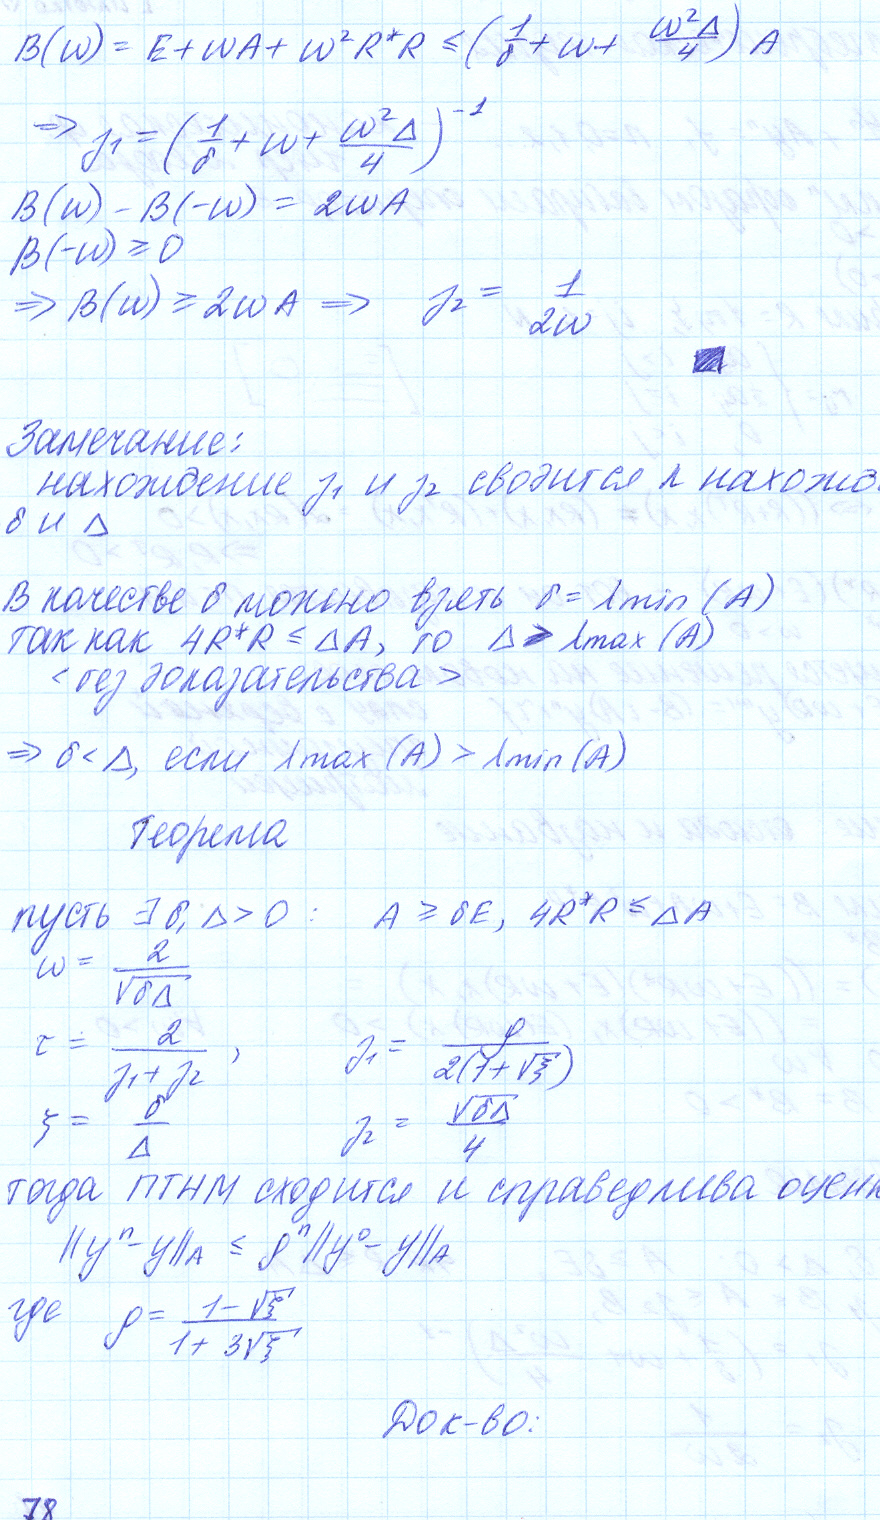 B(ω) = E + ωA + ω²R*R ≤ (1/δ + ω + ω²Δ/4) A
⇒ γ₁ = (1/δ + ω + ω²Δ/4)⁻¹
B(ω) - B(-ω) = 2ωA
B(-ω) ≥ 0
⇒ B(ω) ≥ 2ωA ⇒ γ₂ = 1/2ω
Замечание:
нахождение γ₁ и γ₂ сводится к нахожд.
δ и Δ
В качестве δ можно взять δ = λmin(A)
так как 4R*R ≤ ΔA, то Δ ≥ λmax(A)
<без доказательства>
⇒ δ < Δ, если λmax(A) > λmin(A)
Теорема
пусть ∃ δ, Δ > 0 : A ≥ δE, 4R*R ≤ ΔA
ω = 2/√(δΔ)
τ = 2/(γ₁ + γ₂), γ₁ = δ/(2(1+√ξ))
ξ = δ/Δ γ₂ = √(δΔ)/4
тогда ПТИМ сходится и справедлива оценк
||yⁿ - y||A ≤ ρⁿ||y⁰ - y||A
где ρ = (1 - √ξ)/(1 + 3√ξ)
Док-во:
78